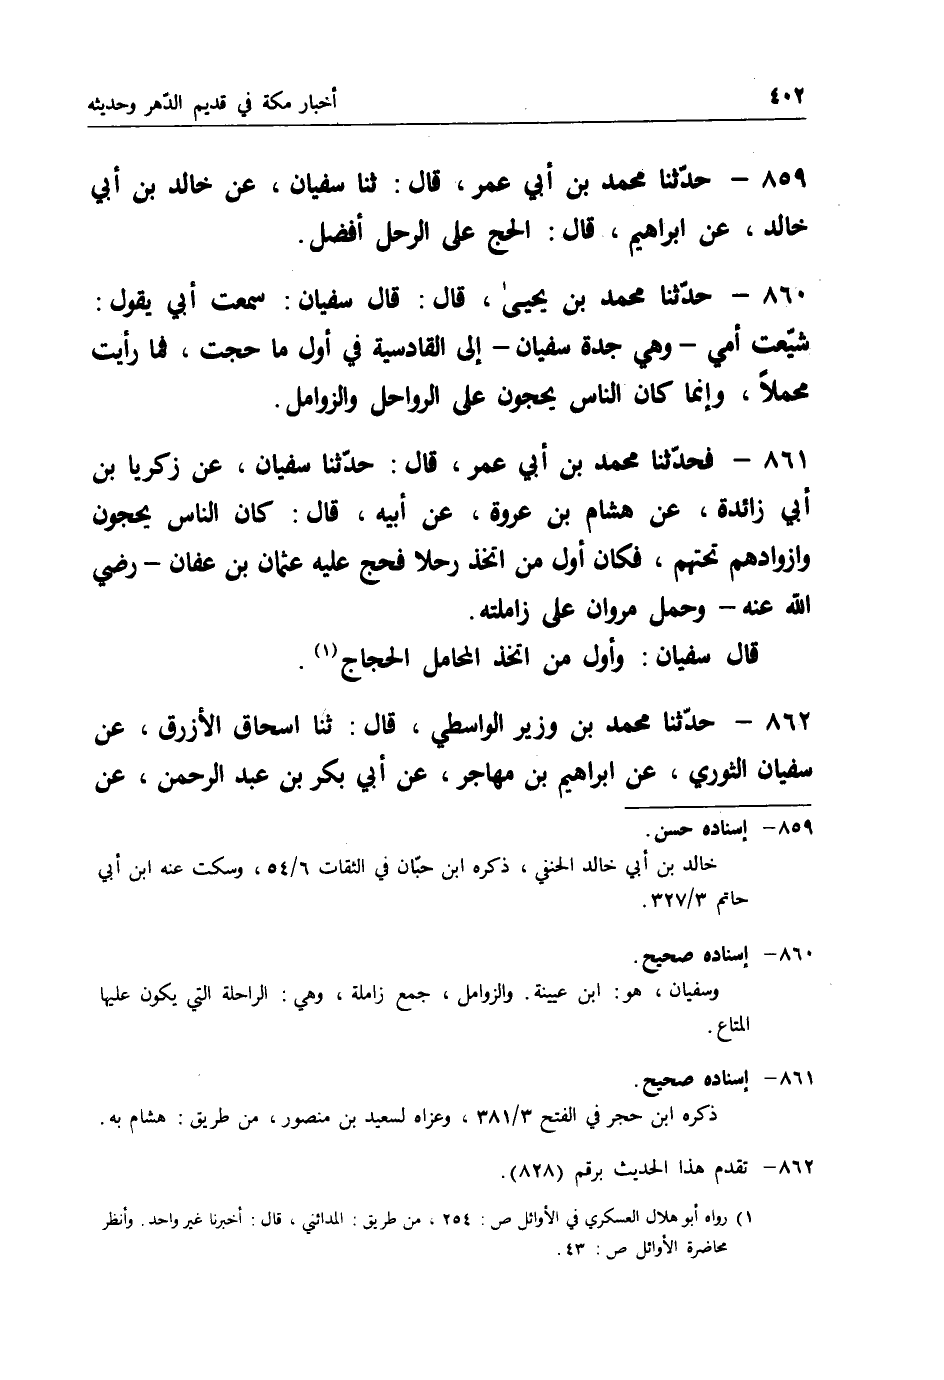 ٤٠٢ أخبار مكة في قديم الدّهر وحديثه
٨٥٩ – حدّثنا محمد بن أبي عمر ، قال : ثنا سفيان ، عن خالد بن أبي
خالد ، عن ابراهيم ، قال : الحج على الرحل أفضل.
٨٦٠ – حدّثنا محمد بن يحيىٰ ، قال : قال سفيان : سمعت أبي يقول :
شيّعت أمي – وهي جدة سفيان – إلى القادسية في أول ما حجت ، فما رأيت
محملاً ، وإنما كان الناس يحجون على الرواحل والزوامل.
٨٦١ – فحدّثنا محمد بن أبي عمر ، قال : حدّثنا سفيان ، عن زكريا بن
أبي زائدة ، عن هشام بن عروة ، عن أبيه ، قال : كان الناس يحجون
وازوادهم تحتهم ، فكان أول من اتخذ رحلا فحج عليه عثمان بن عفان – رضي
الله عنه – وحمل مروان على زاملته.
قال سفيان : وأول من اتخذ المحامل الحجاج(١) .
٨٦٢ – حدّثنا محمد بن وزير الواسطي ، قال : ثنا اسحاق الأزرق ، عن
سفيان الثوري ، عن ابراهيم بن مهاجر ، عن أبي بكر بن عبد الرحمن ، عن
٨٥٩– إسناده حسن.
خالد بن أبي خالد الحنفي ، ذكره ابن حبّان في الثقات ٥٤/٦ ، وسكت عنه ابن أبي
حاتم ٣٢٧/٣.
٨٦٠– إسناده صحيح.
وسفيان ، هو : ابن عيينة. والزوامل ، جمع زاملة ، وهي : الراحلة التي يكون عليها
المتاع.
٨٦١– إسناده صحيح.
ذكره ابن حجر في الفتح ٣٨١/٣ ، وعزاه لسعيد بن منصور ، من طريق : هشام به.
٨٦٢– تقدم هذا الحديث برقم (٨٢٨).
١) رواه أبو هلال العسكري في الأوائل ص : ٢٥٤ ، من طريق : المدائني ، قال : أخبرنا غير واحد. وأنظر
محاضرة الأوائل ص : ٤٣.